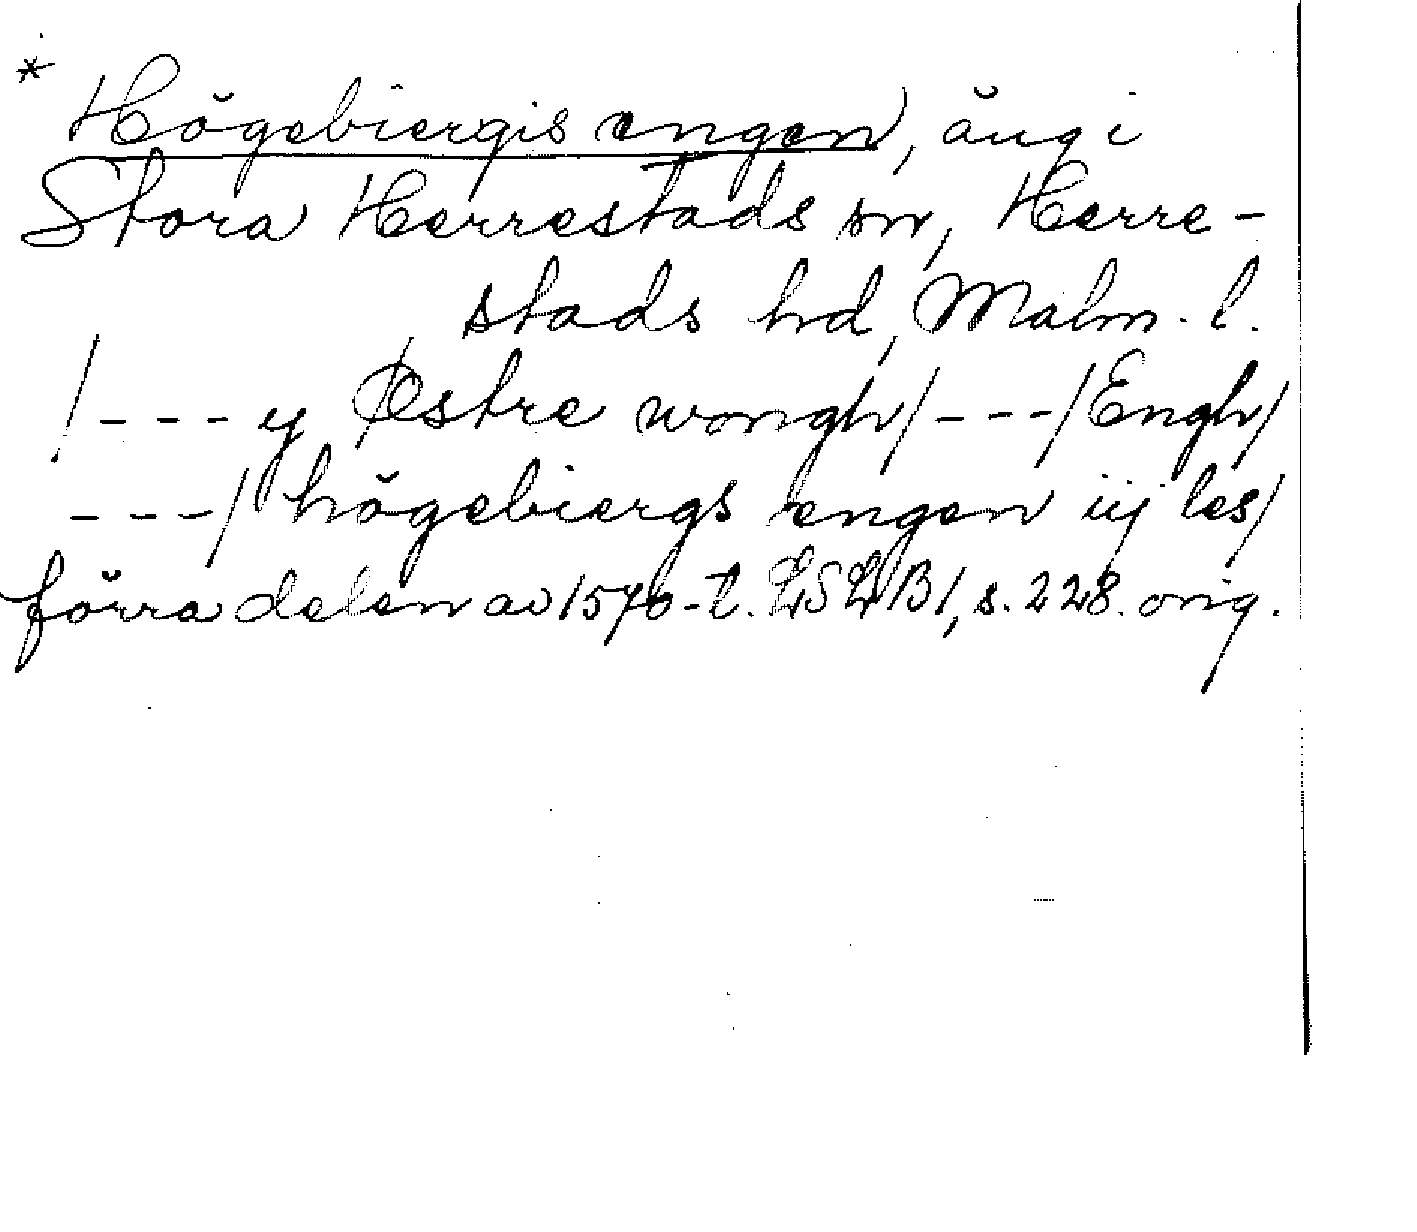 * Högebiergis engen, äng i
Stora Herrestads sn, Herre-
stads hd, Malm. l.
/--- y Østre wongh/---/Engh/
---/ högebiergs engen iij les/
förra delen av 1570-t. LSLB1, s. 228. orig.